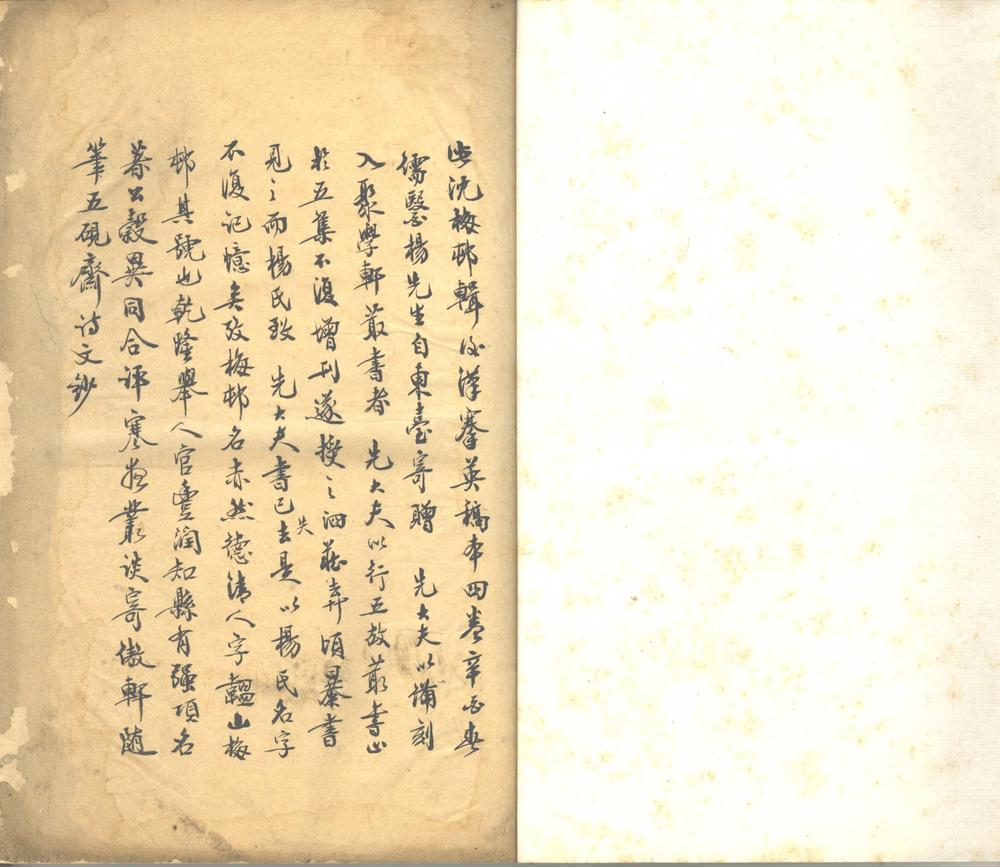 此沈梅邨輯後漢搴英稿本四卷辛酉春
儒醫楊先生自東臺寄贈　先大夫以備刻
入聚學軒叢書者　先大夫以行五故叢書止
於五集不復增刊遂授之泗葊弆頃曝書
見之而楊氏致　先大夫書已失去是以楊氏名字
不復記憶矣攷梅邨名赤然德清人字韞山梅
邨其號也乾隆舉人官豐潤知縣有强項名
著公穀異同合評寒夜叢談寄傲軒隨
筆五硯齋詩文鈔